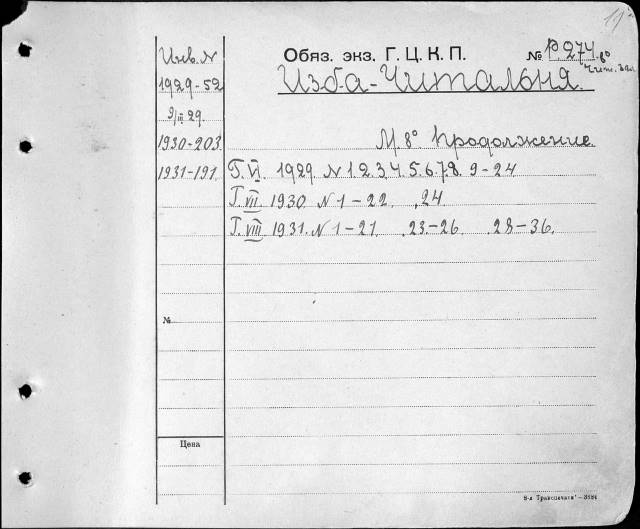 Инв. N
1929-52
9/III 29.
1930-203.
1931-191.
№
Цена
Обяз. экз. Г. Ц. К. П. № P 274
Чит. зал
Изба-Читальня.
М. 8° Продолжение.
Г. VI. 1929. N 1. 2. 3. 4. 5. 6. 7. 8. 9-24
Г. VII. 1930. N 1-22. ,24
Г. VIII. 1931. N 1-21. .23.-26. .28-36.